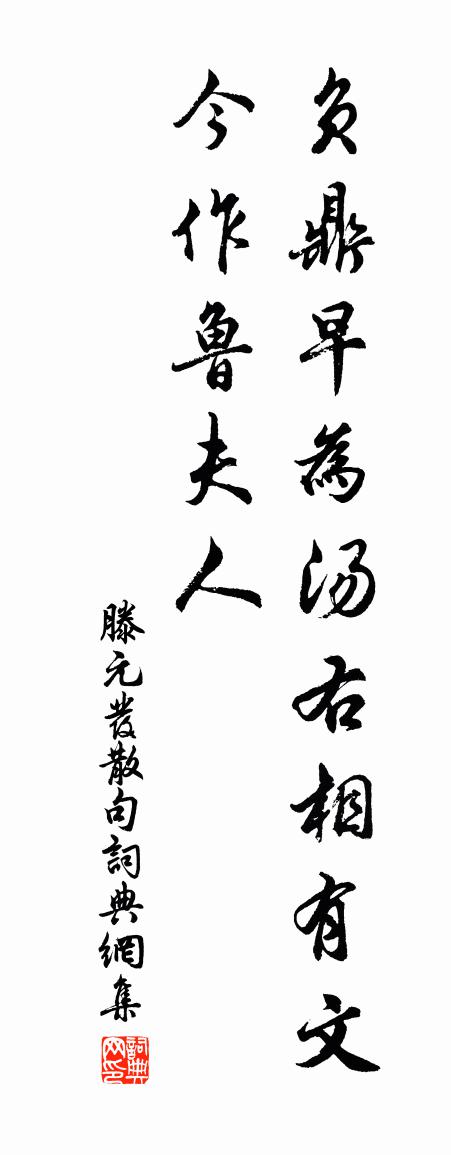 负鼎早為汤右相有文
今作魯夫人
滕元發散句詞典網集
詞典网印